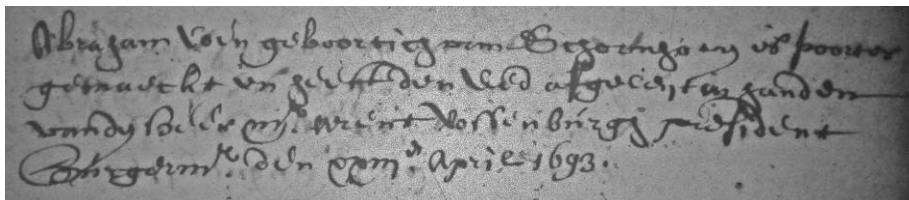 Abraham Voin geboortich van Schoonhoven is poorter
gemaeckt en heeft den eed afgeleijt in handen
vandhr heer mr. Arent Vossenburgh president
Burgermr. den xxiiie April 1693.